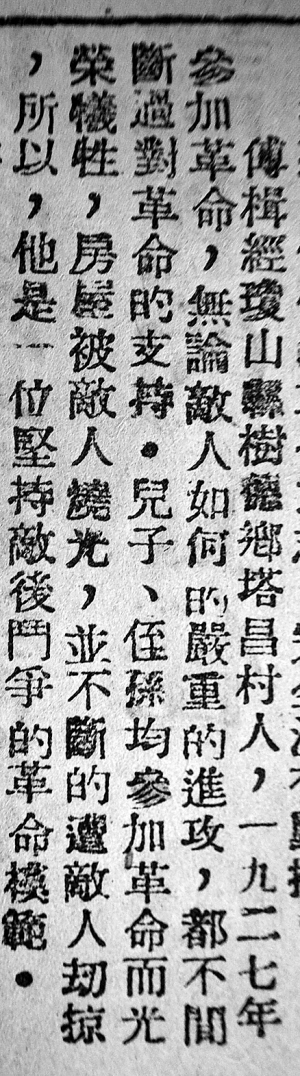 傅楫經瓊山縣樹德鄉塔昌村人，一九二七年
參加革命，無論敵人如何的嚴重的進攻，都不間
斷過對革命的支持．兒子、侄孫均參加革命而光
榮犧牲，房屋被敵人燒光，並不斷的遭敵人刼掠
，所以，他是一位堅持敵後鬥爭的革命模範．